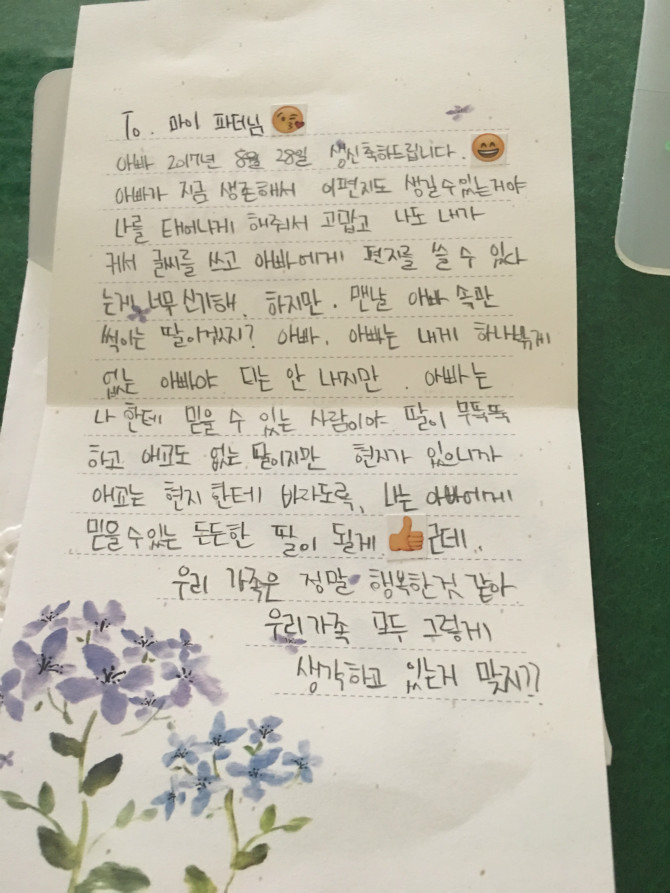 To. 마이 파더님
아빠 2017년 8월 28일 생신축하드립니다.
아빠가 지금 생존해서 이편지도 생길수있는거야
나를 태어나게 해줘서 고맙고 나도 내가
커서 글씨를 쓰고 아빠에게 편지를 쓸 수 있다
는게 너무 신기해. 하지만. 맨날 아빠 속만
썩이는 딸이었지? 아빠. 아빠는 내게 하나뿐게
없는 아빠야 티는 안 내지만. 아빠는
나 한테 믿을 수 있는 사람이야 딸이 무뚝뚝
하고 애교도 없는 딸이지만 현지가 있으니까
애교는 현지 한테 바라도록, 나는 아빠에게
믿을수있는 든든한 딸이 될게 근데..
우리 가족은 정말 행복한것 같아
우리가족 모두 그렇게
생각하고 있는거 맞지??